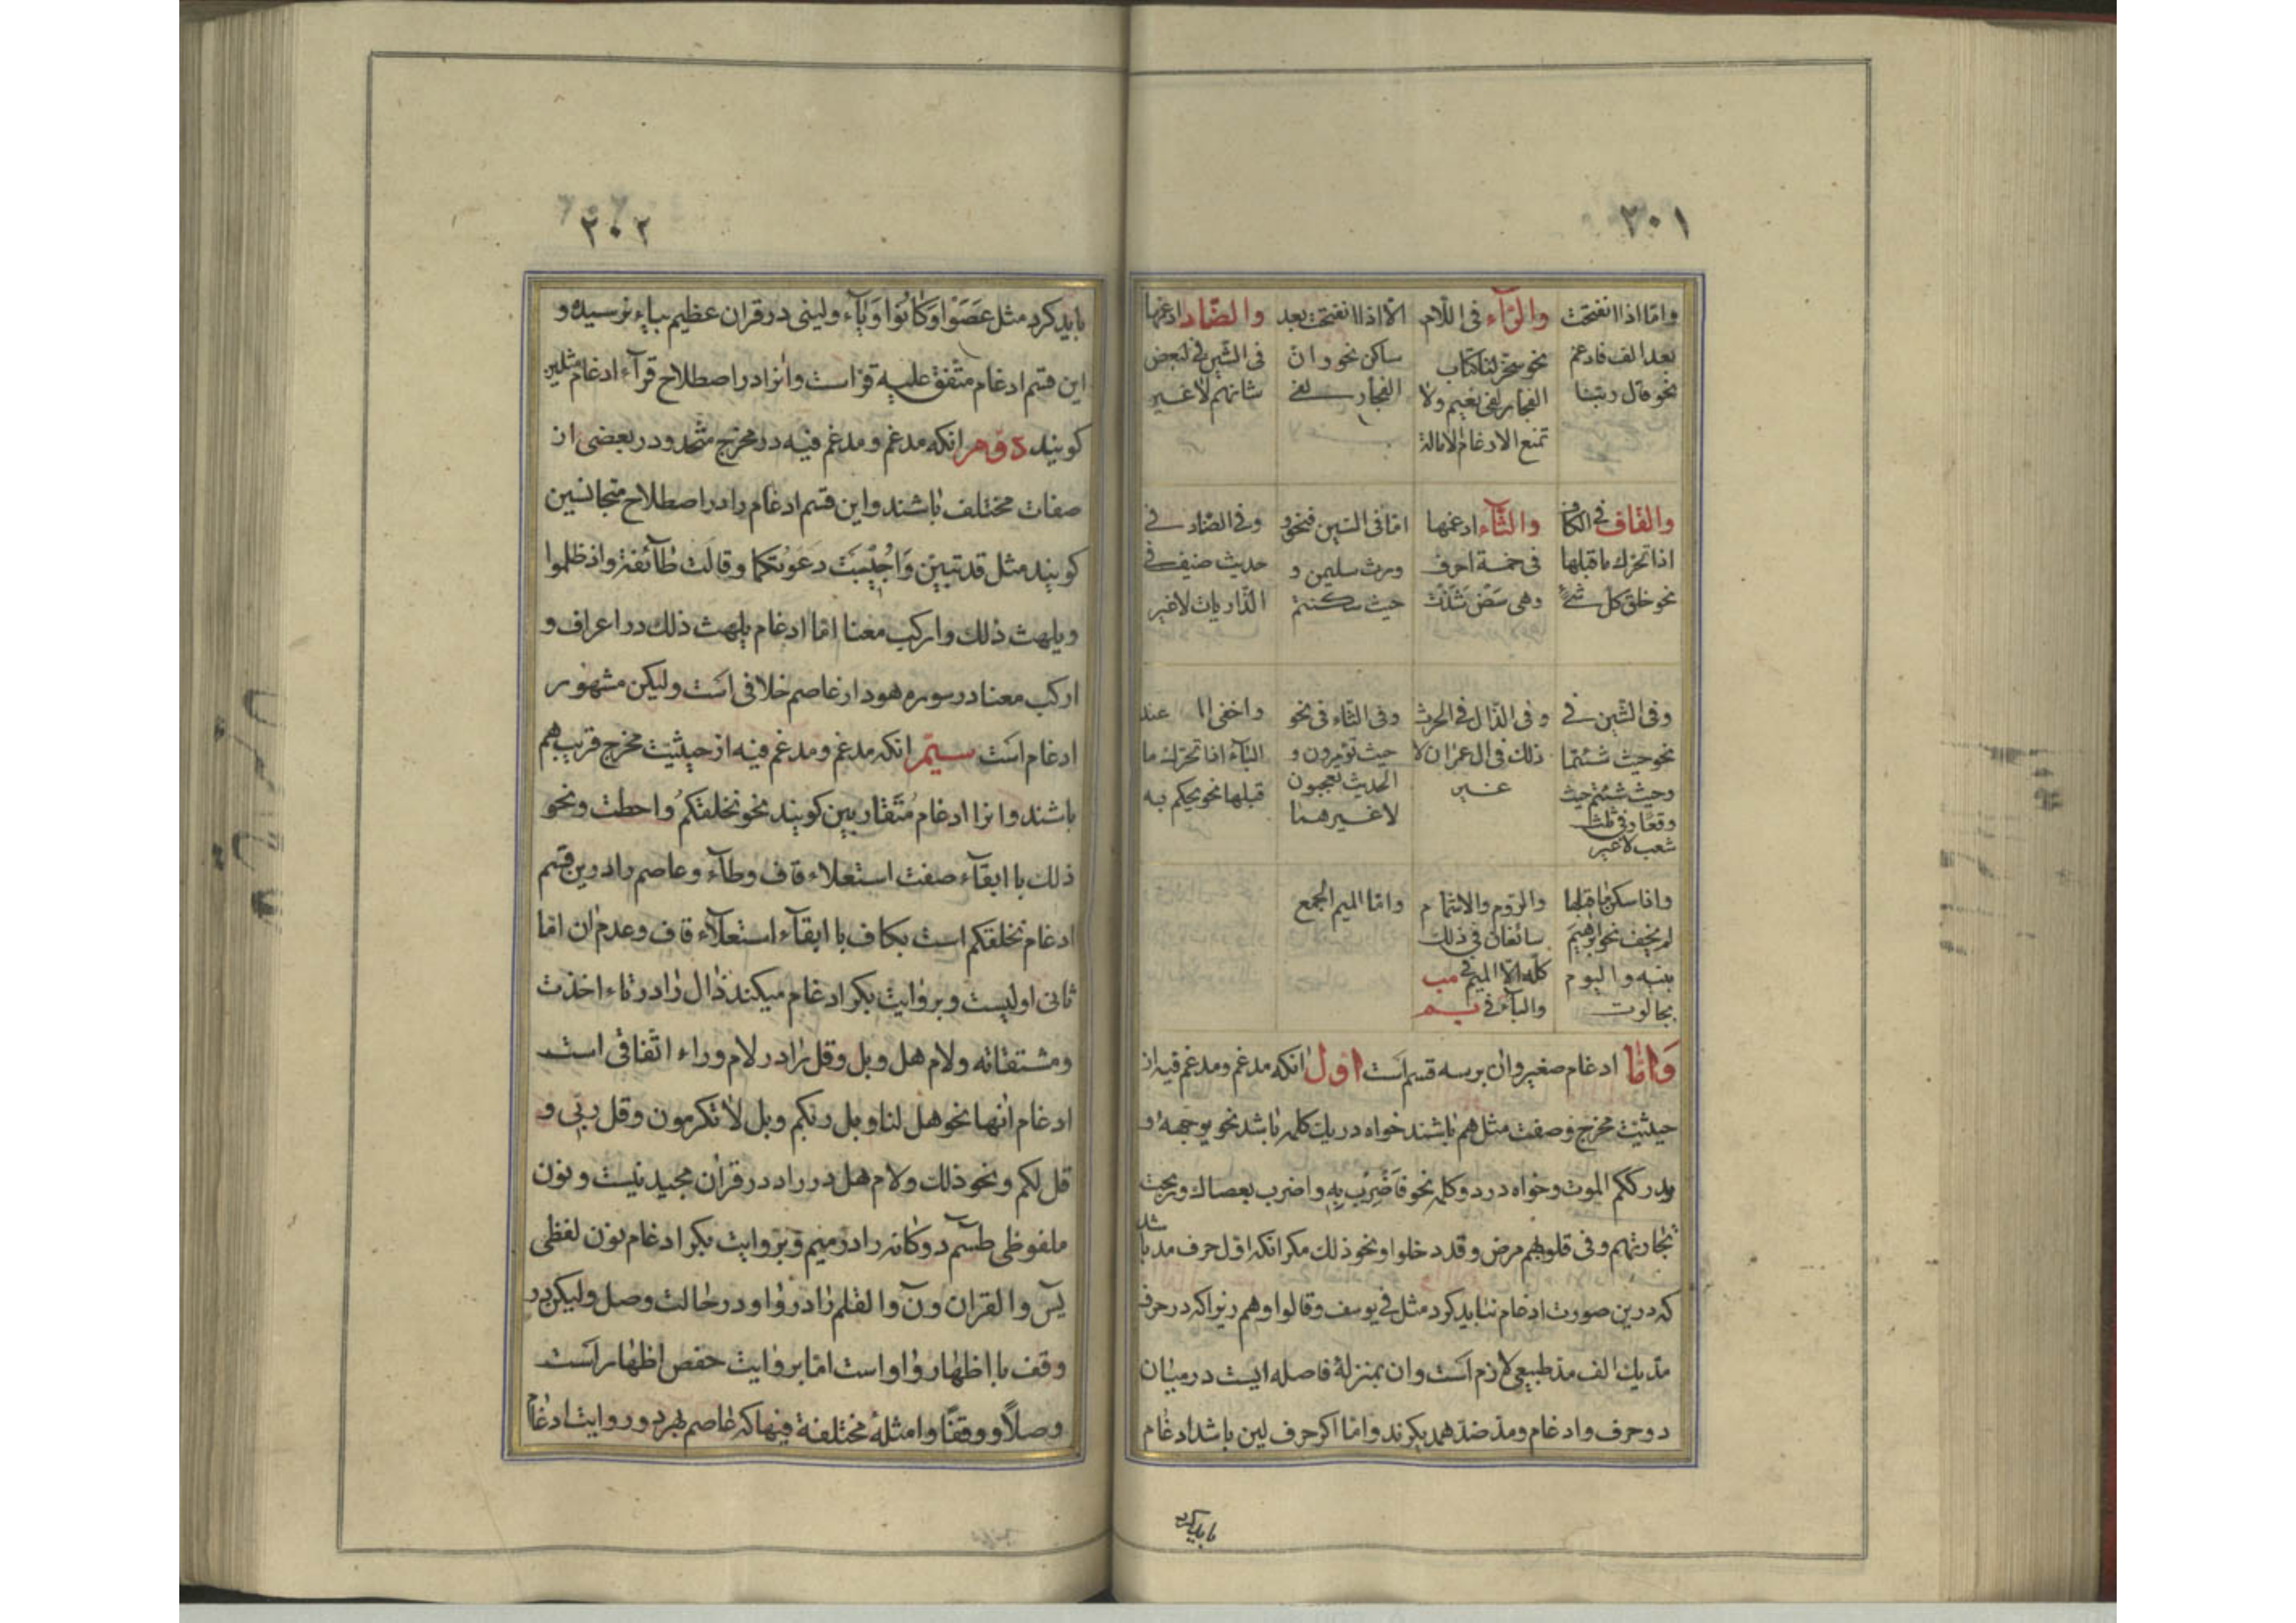 ٣٠١
واما اذا انفتحت
بعد الف فادغم
نحو قال ربنا
والرآء فى اللام
نحو سخر لنا كتاب
الفجار لفى نعيم ولا
تمنع الادغام الامالة
الا اذا انفتحت بعد
ساكن نحو وان
الفجار لفى
والضاد ادغمها
فى الشين فى لبعض
شانهم لا غير
والقاف فى الكاف
اذا تحرك ما قبلها
نحو خلق كل شئ
والثآء ادغمها
فى خمسة احرف
وهى
اما فى السين فنحو
ورث سليمن و
حيث سكنتم
وفى الضاد فى
حديث ضيف فى
الذاريات لا غير
وفى الشين فى
نحو حيث شئتما
وحيث شئتم حيث
وقعا وفى ثلث
شعب لا غير
وفى الذال فى الحرث
ذلك فى ال عمران لا
غير
وفى التاء فى نحو
حيث تؤمرون و
الحديث تعجبون
لا غير هنا
واخفى عند
البآء اذا تحرك ما
قبلها نحو يحكم به
واذا سكن ما قبلها
لم يخف نحو ابرهيم
بنيه واليوم
بجالوت
والروم والاشمام
سائغان فى ذلك
كله الا الميم فى مب
والبآء فى بم
واما الميم الجمع
واما ادغام صغير وان بر سه قسم است اول انكه مدغم ومدغم فيه از
حيثيت مخرج وصفت مثل هم باشند خواه در يك كلمه باشد نحو يوجهه و
يدرككم الموت وخواه در دو كلمه نحو فاضرب به واضرب بعصاك وربحت
تجارتهم وفى قلوبهم مرض وقد دخلوا ونحو ذلك مكر انكه اول حرف مد باشد
كه درين صورت ادغام نبايد كرد مثل فى يوسف وقالوا وهم زيرا كه در حرف
مد يك الف مد طبيعى لازم است وان بمنزلهٔ فاصله ايست در ميان
دو حرف وادغام ومد ضد همديكرند واما اكر حرف لين باشد ادغام
بايد كرد
٣٠٢
بايد كرد مثل عصوا وكانوا وياء ولينى در قران عظيم بياء نرسيده و
اين قسم ادغام متفق عليه قراست وانرا در اصطلاح قرآء ادغام مثلين
كويند دوم انكه مدغم ومدغم فيه در مخرج متحد ودر بعضى از
صفات مختلف باشند واين قسم ادغام را در اصطلاح متجانسين
كويند مثل قد تبين واجيبت دعوتكما وقالت طآئفة واذ ظلموا
ويلهث ذلك واركب معنا اما ادغام يلهث ذلك در اعراف و
اركب معنا در سوره هود از عاصم خلافى است وليكن مشهور
ادغام است سيم انكه مدغم ومدغم فيه از حيثيت مخرج قريب هم
باشند وانرا ادغام متقاربين كويند نحو نخلقكم واحطت ونحو
ذلك با ابقآء صفت استعلاء قاف وطآء وعاصم را درين قسم
ادغام نخلقكم است بكاف با ابقآء استعلآء قاف وعدم ان اما
ثانى اوليست وبروايت بكر ادغام ميكند ذال را در تاء اخذت
ومشتقاته ولام هل وبل وقل را در لام وراء اتفاقى است
ادغام انها نحو هل لنا وبل ربكم وبل لا تكرمون وقل ربى و
قل لكم ونحو ذلك ولام هل در را در قران مجيد نيست ونون
ملفوظى طسم دوكانه را در ميم وبروايت بكر ادغام نون لفظى
يس والقران ون والقلم را در واو در حالت وصل وليكن در
وقف با اظهار واو است اما بروايت حفص اظهار است
وصلًا ووقفًا وامثلهٔ مختلفة فيها كه عاصم بهر دو روايت ادغام